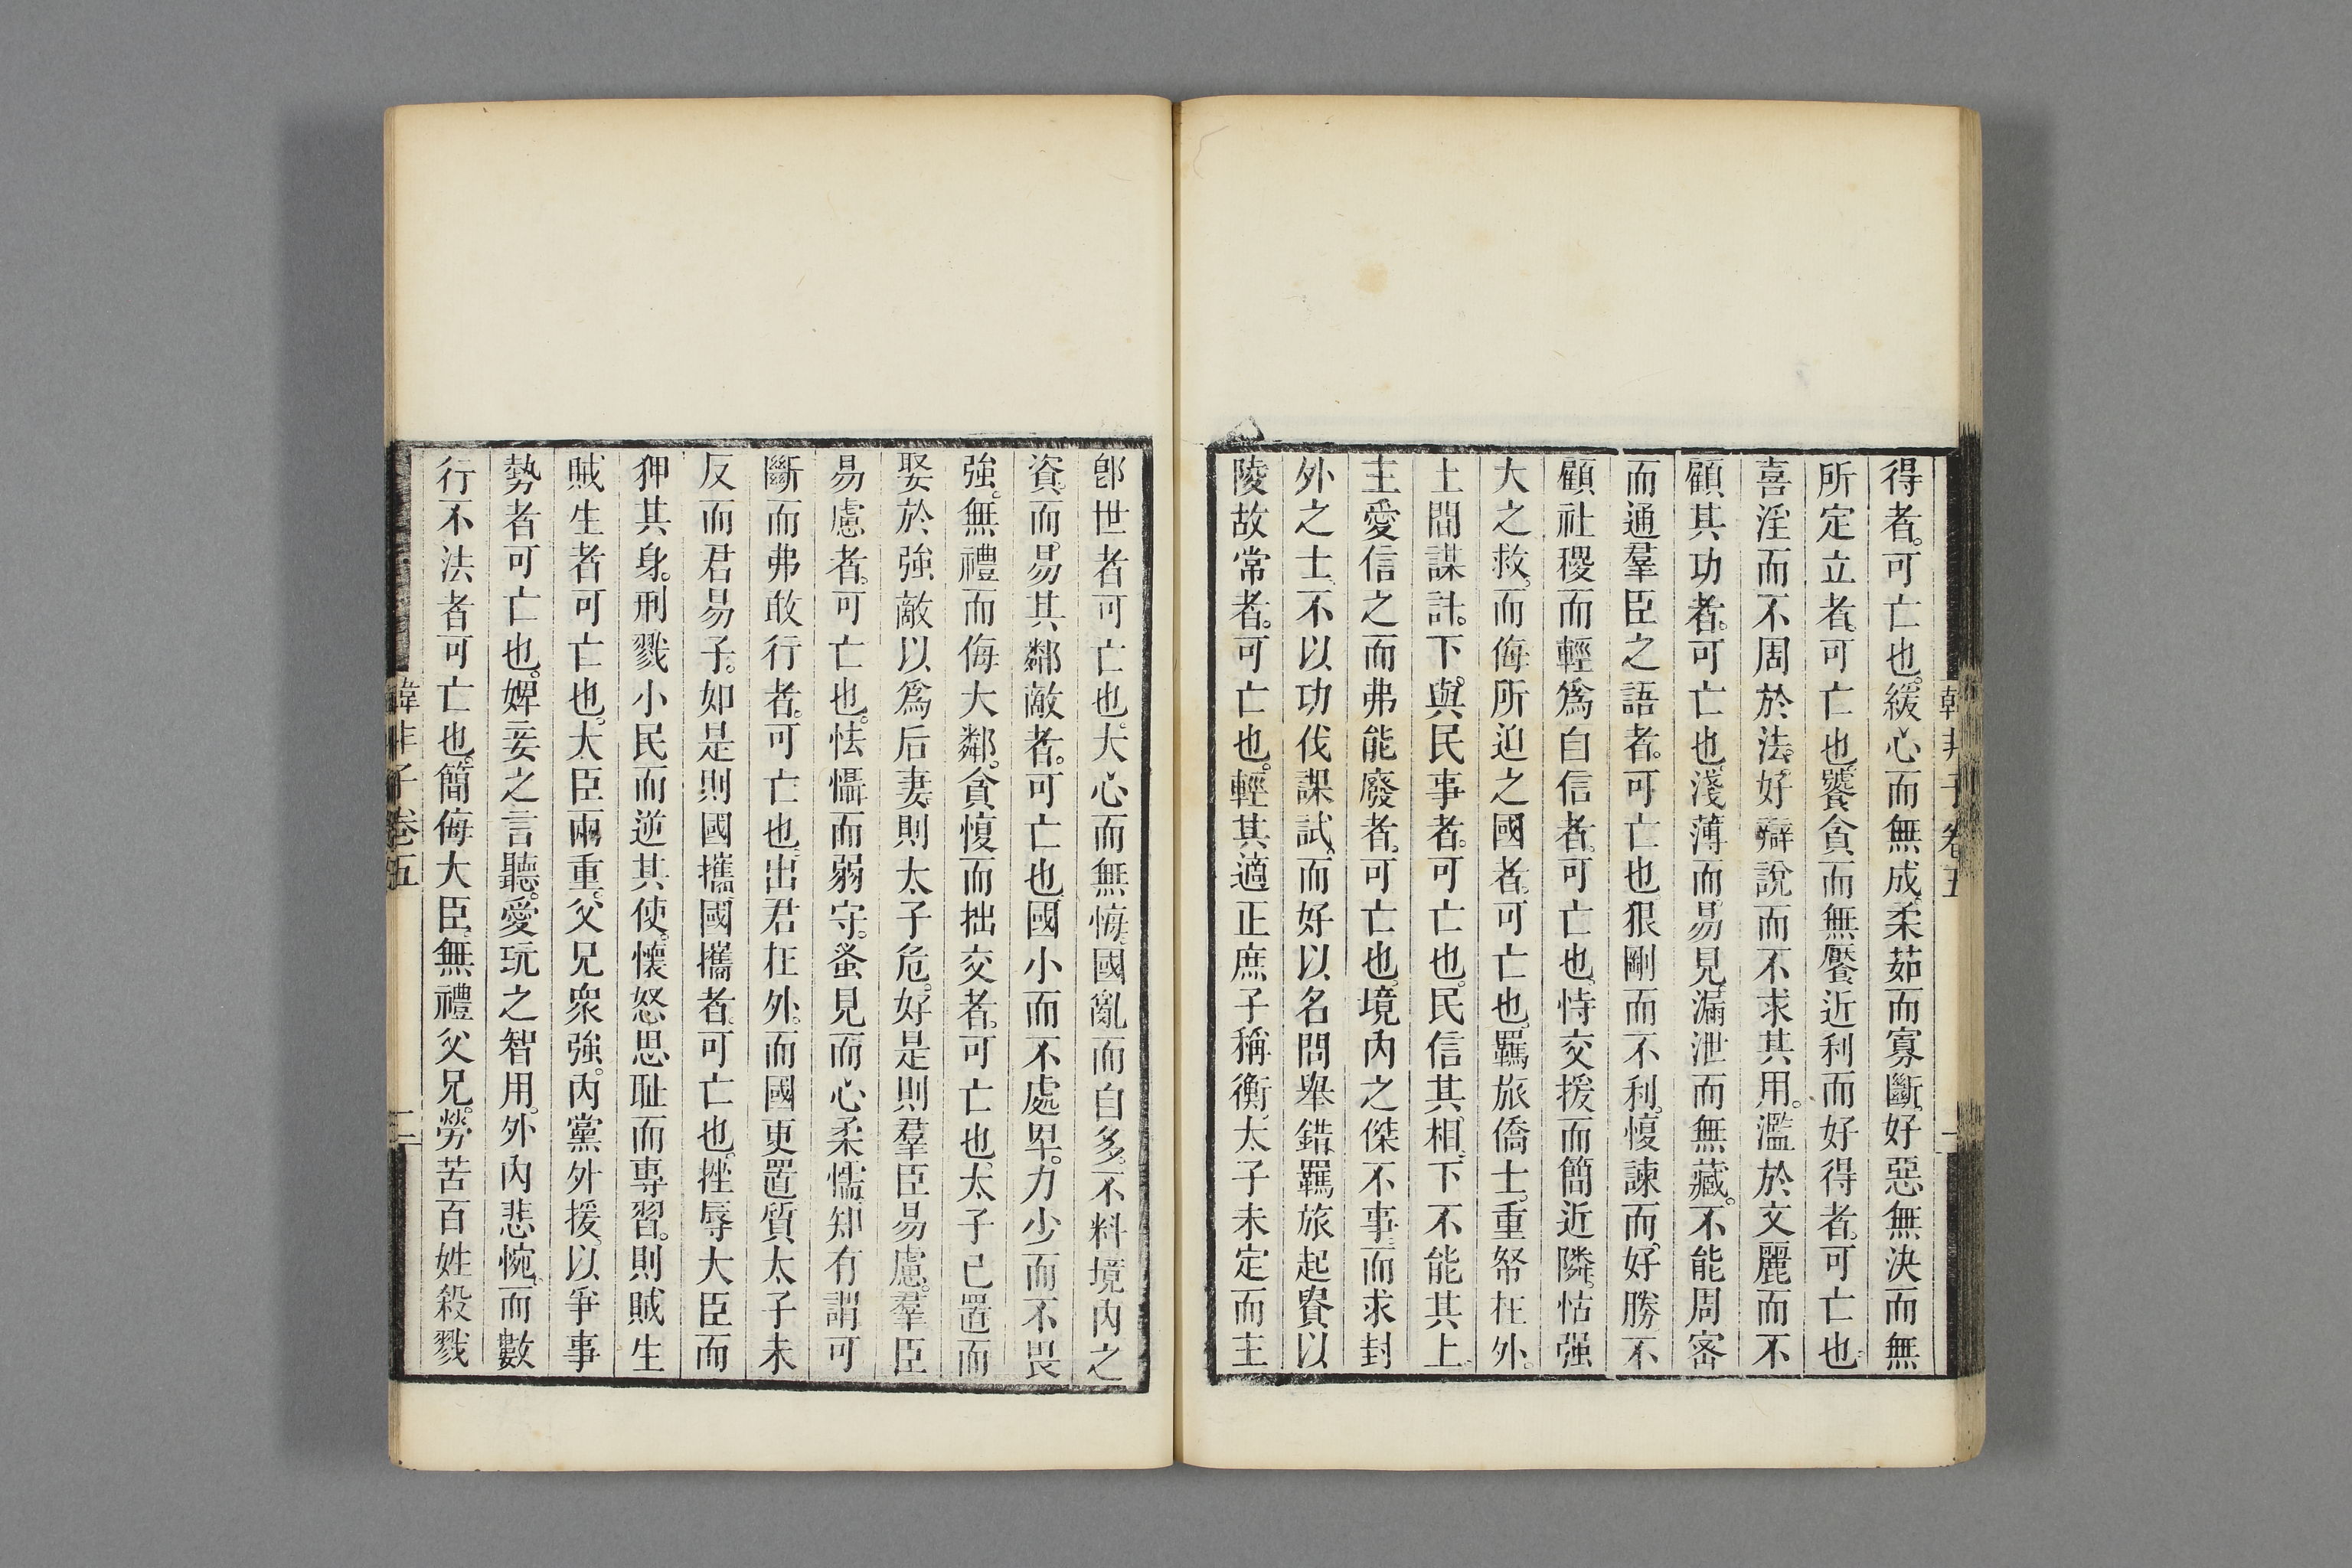 韓非子卷五
一
得者。可亡也。緩心而無成。柔茹而寡斷。好惡無決而無
所定立者。可亡也。饕貪而無饜。近利而好得者。可亡也。
喜淫而不周於法。好辯說而不求其用。濫於文麗而不
顧其功者。可亡也。淺薄而易見。漏泄而無藏。不能周密
而通羣臣之語者。可亡也。狠剛而不利。愎諫而好勝。不
顧社稷而輕爲自信者。可亡也。恃交援而簡近隣。怙强
大之救。而侮所迫之國者。可亡也。羈旅僑士。重帑在外。
上間謀計。下與民事者。可亡也。民信其相。下不能其上。
主愛信之而弗能廢者。可亡也。境內之傑不事。而求封
外之士。不以功伐課試。而好以名問舉錯。羈旅起貴以
陵故常者。可亡也。輕其適正。庶子稱衡。太子未定而主
卽世者可亡也。大心而無悔。國亂而自多。不料境內之
資。而易其鄰敵者。可亡也。國小而不處卑。力少而不畏
強。無禮而侮大鄰。貪愎而拙交者。可亡也。太子已置而
娶於強敵以爲后妻。則太子危。好是則羣臣易慮。羣臣
易慮者。可亡也。怯懾而弱守。蚤見而心柔懦。知有謂可
斷而弗敢行者。可亡也。出君在外。而國更置。質太子未
反而君易子。如是則國攜。國攜者。可亡也。挫辱大臣而
狎其身。刑戮小民而逆其使。懷怒思耻而專習。則賊生
賊生者可亡也。大臣兩重。父兄衆強。內黨外援。以爭事
勢者可亡也。婢妾之言聽。愛玩之智用。外內悲惋。而數
行不法者可亡也。簡侮大臣。無禮父兄。勞苦百姓殺戮
韓非子卷五
二